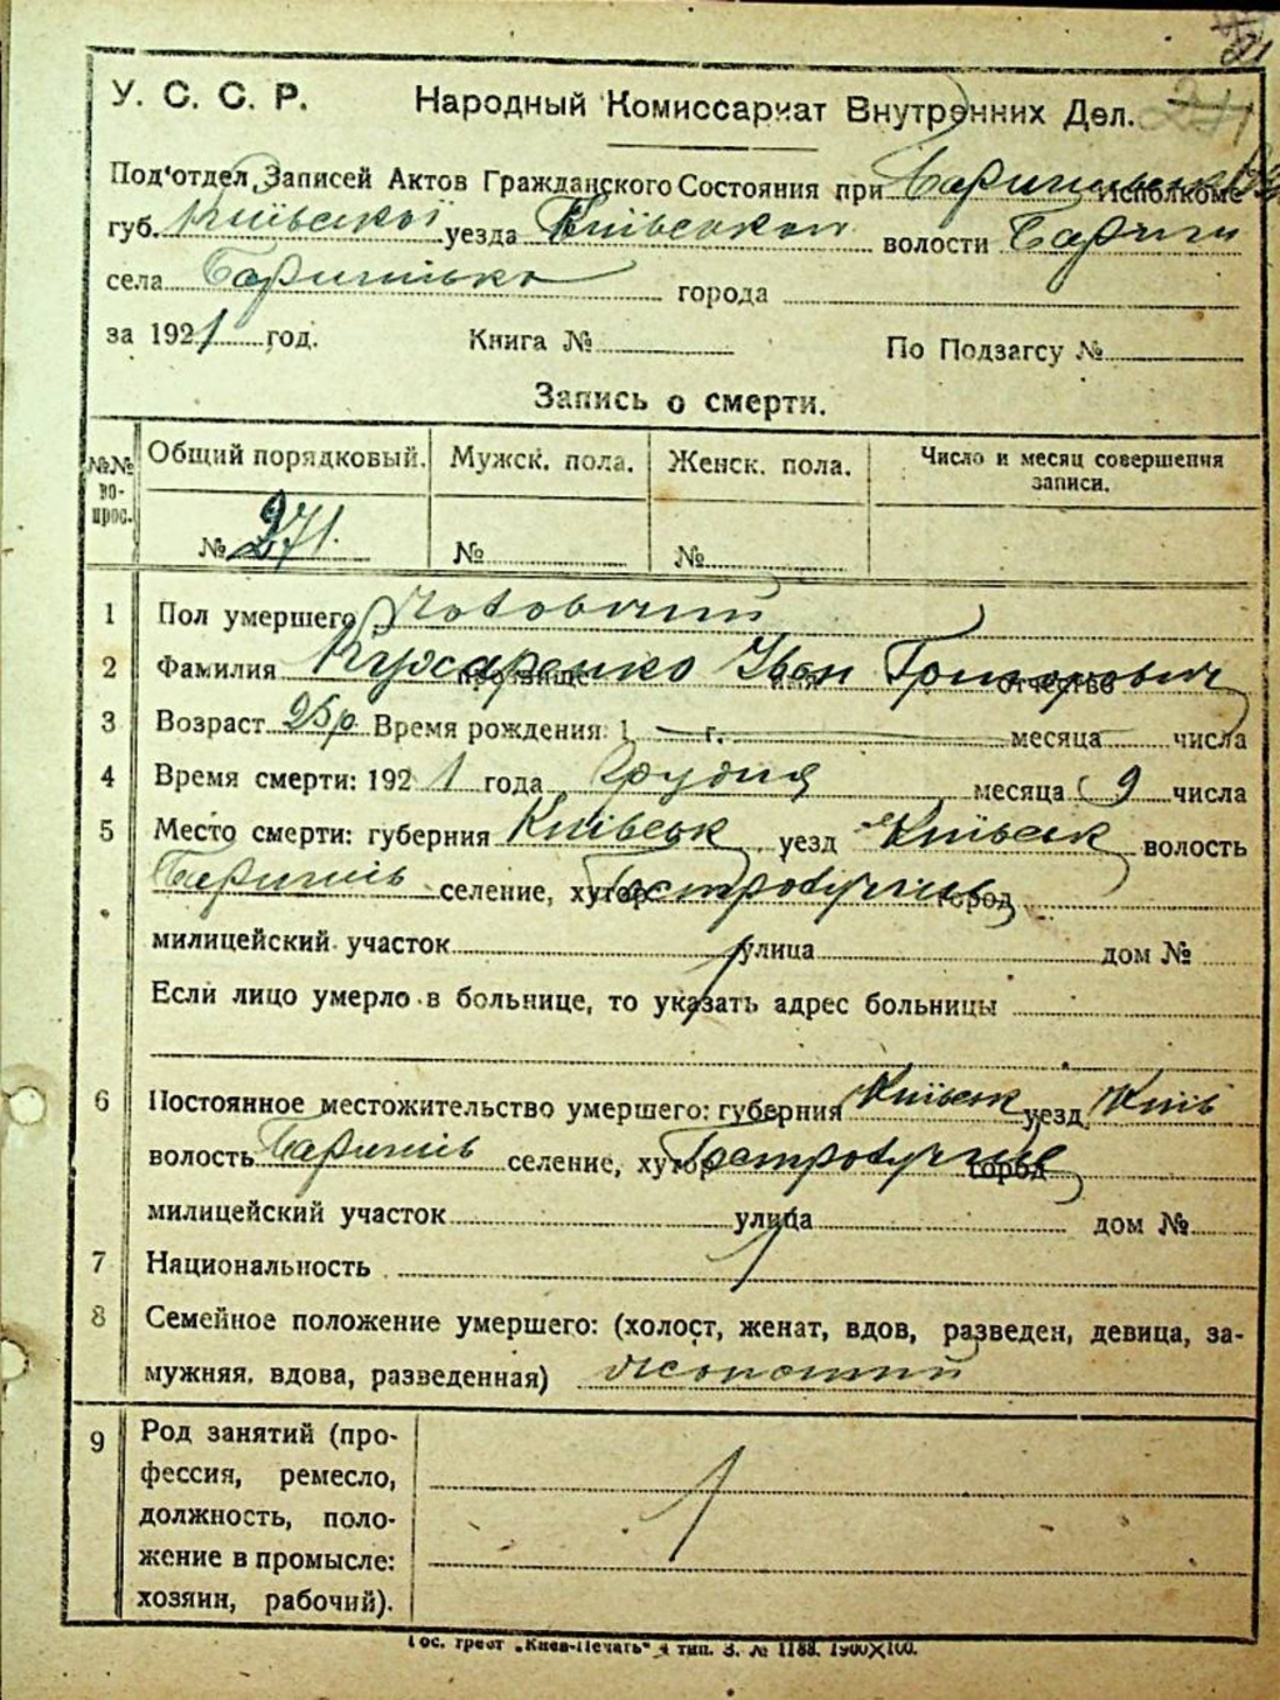 21
У. С. С. Р. Народный Комиссариат Внутренних Дел.
Под'отдел Записей Актов Гражданского Состояния при Исполкоме
губ. Київської уезда Київського волости Бариш
села города
за 1921 год. Книга № По Подзагсу №
Запись о смерти.
№№ вопрос. Общий порядковый. Мужск. пола. Женск. пола. Число и месяц совершения записи.
№ 271. № №
1 Пол умершего Чоловичий
2 Фамилия Кухаренко прозвище Іван имя Григорович отчество
3 Возраст 25 р Время рождения: 1 г. месяца числа
4 Время смерти: 1921 года Грудня месяца 9 числа
5 Место смерти: губерния Київськ уезд Київськ волость
Баришів селение, хутор Гостролуччє город
милицейский участок улица дом №
Если лицо умерло в больнице, то указать адрес больницы
6 Постоянное местожительство умершего: губерния Київськ уезд Київ
волость Баришів селение, хутор Гостролуччє город
милицейский участок улица дом №
7 Национальность
8 Семейное положение умершего: (холост, женат, вдов, разведен, девица, за-
мужняя, вдова, разведенная)
9 Род занятий (про-
фессия, ремесло,
должность, поло-
жение в промысле:
хозяин, рабочий).
Гос. трест „Киев-Печать" 4 тип. З. № 1188. 1900×100.